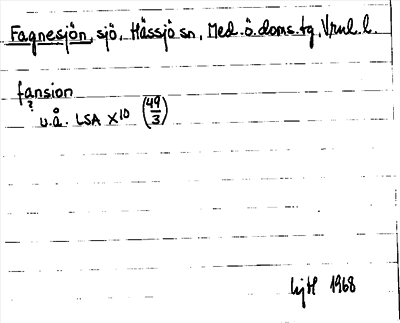 Fagnesjön, sjö, Hässjö sn, Med. ö. doms. tg, Vnrl. l.
fansion
?
u. å. LSA X10 (49/3)
1968